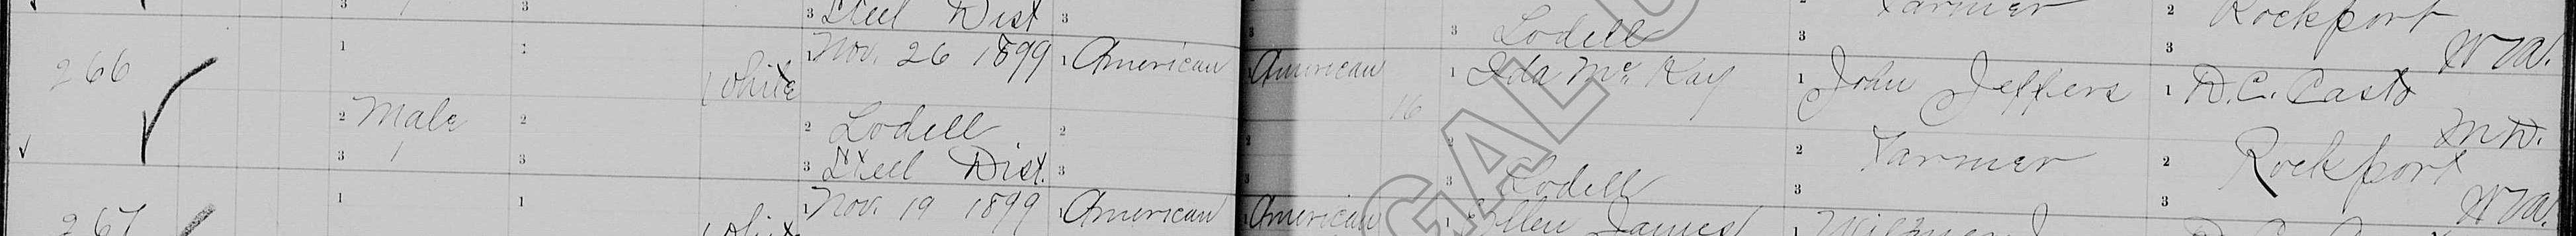 3 3 3 Steel Dist 3 3 3 Lodell 2 Farmer 2 Rockport
266 1 1 White 1 Nov. 26 1899 1 American 1 American 1 Ida Mc Kay 3 1 John Jeffers 3 W Va. 1 D. C. Casto
2 Male 2 2 Lodell 2 2 16 2 2 Farmer M D. 2 Rockport
3 1 3 3 Steel Dist. 3 3 3 Lodell 3 3 W Va.
267 1 1 White 1 Nov. 19 1899 1 American 1 American 1 Ellen James 1